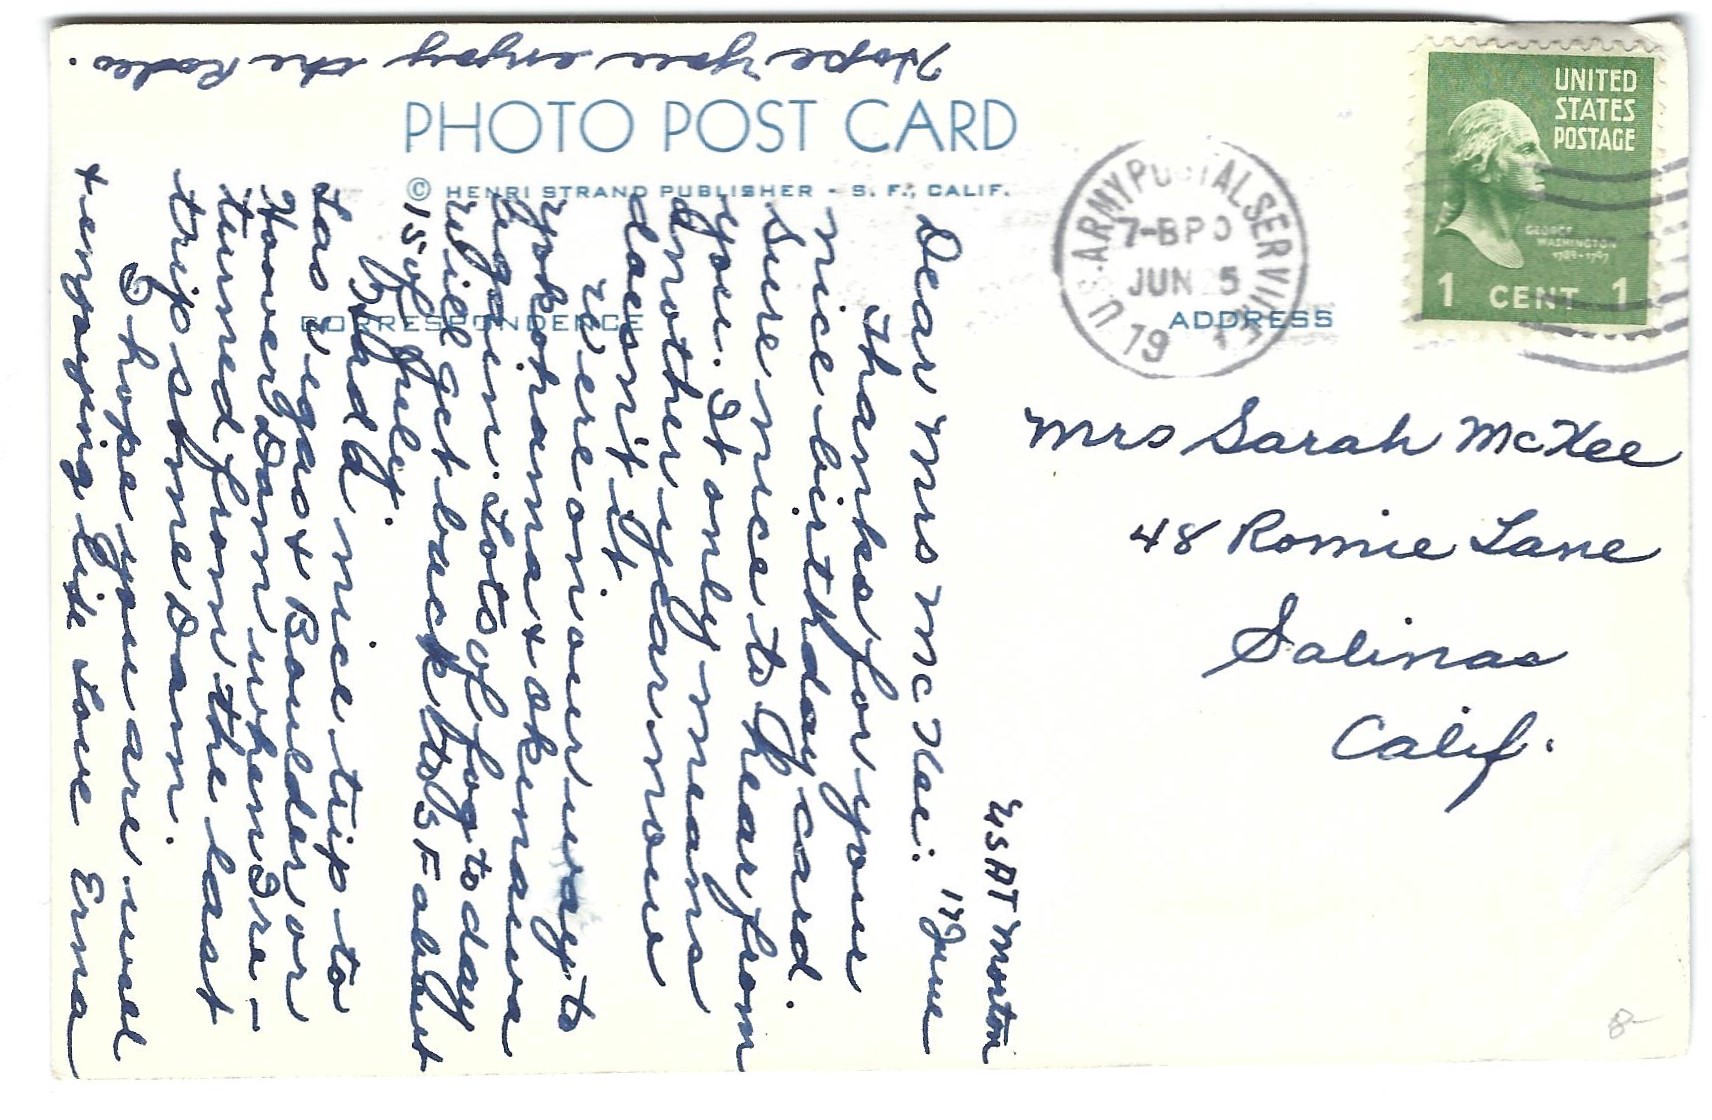 PHOTO POST CARD
© HENRI STRAND PUBLISHER - S. F., CALIF.
CORRESPONDENCE
ADDRESS
UNITED
STATES
POSTAGE
GEORGE
WASHINGTON
1789-1797
1 CENT 1
U.S. ARMY POSTAL SERVICE
JUN 5
19
Mrs Sarah McKee
48 Romie Lane
Salinas
Calif.
USAT Morton
17 June
Dear Mrs McKee:
Thanks for your
nice birthday card.
Sure nice to hear from
you. It only means
another year now
doesn't it.
We're on our way to
Yokohama & Okinawa
again. Lots of fog today
will get back to S F about
15 of July.
Had a nice trip to
Las Vegas & Boulder or
Hoover Dam when I re-
turned from the last
trip some Dam.
I hope you are well
& enjoying life Love Erma
Hope you enjoy the Rodeo.
8-